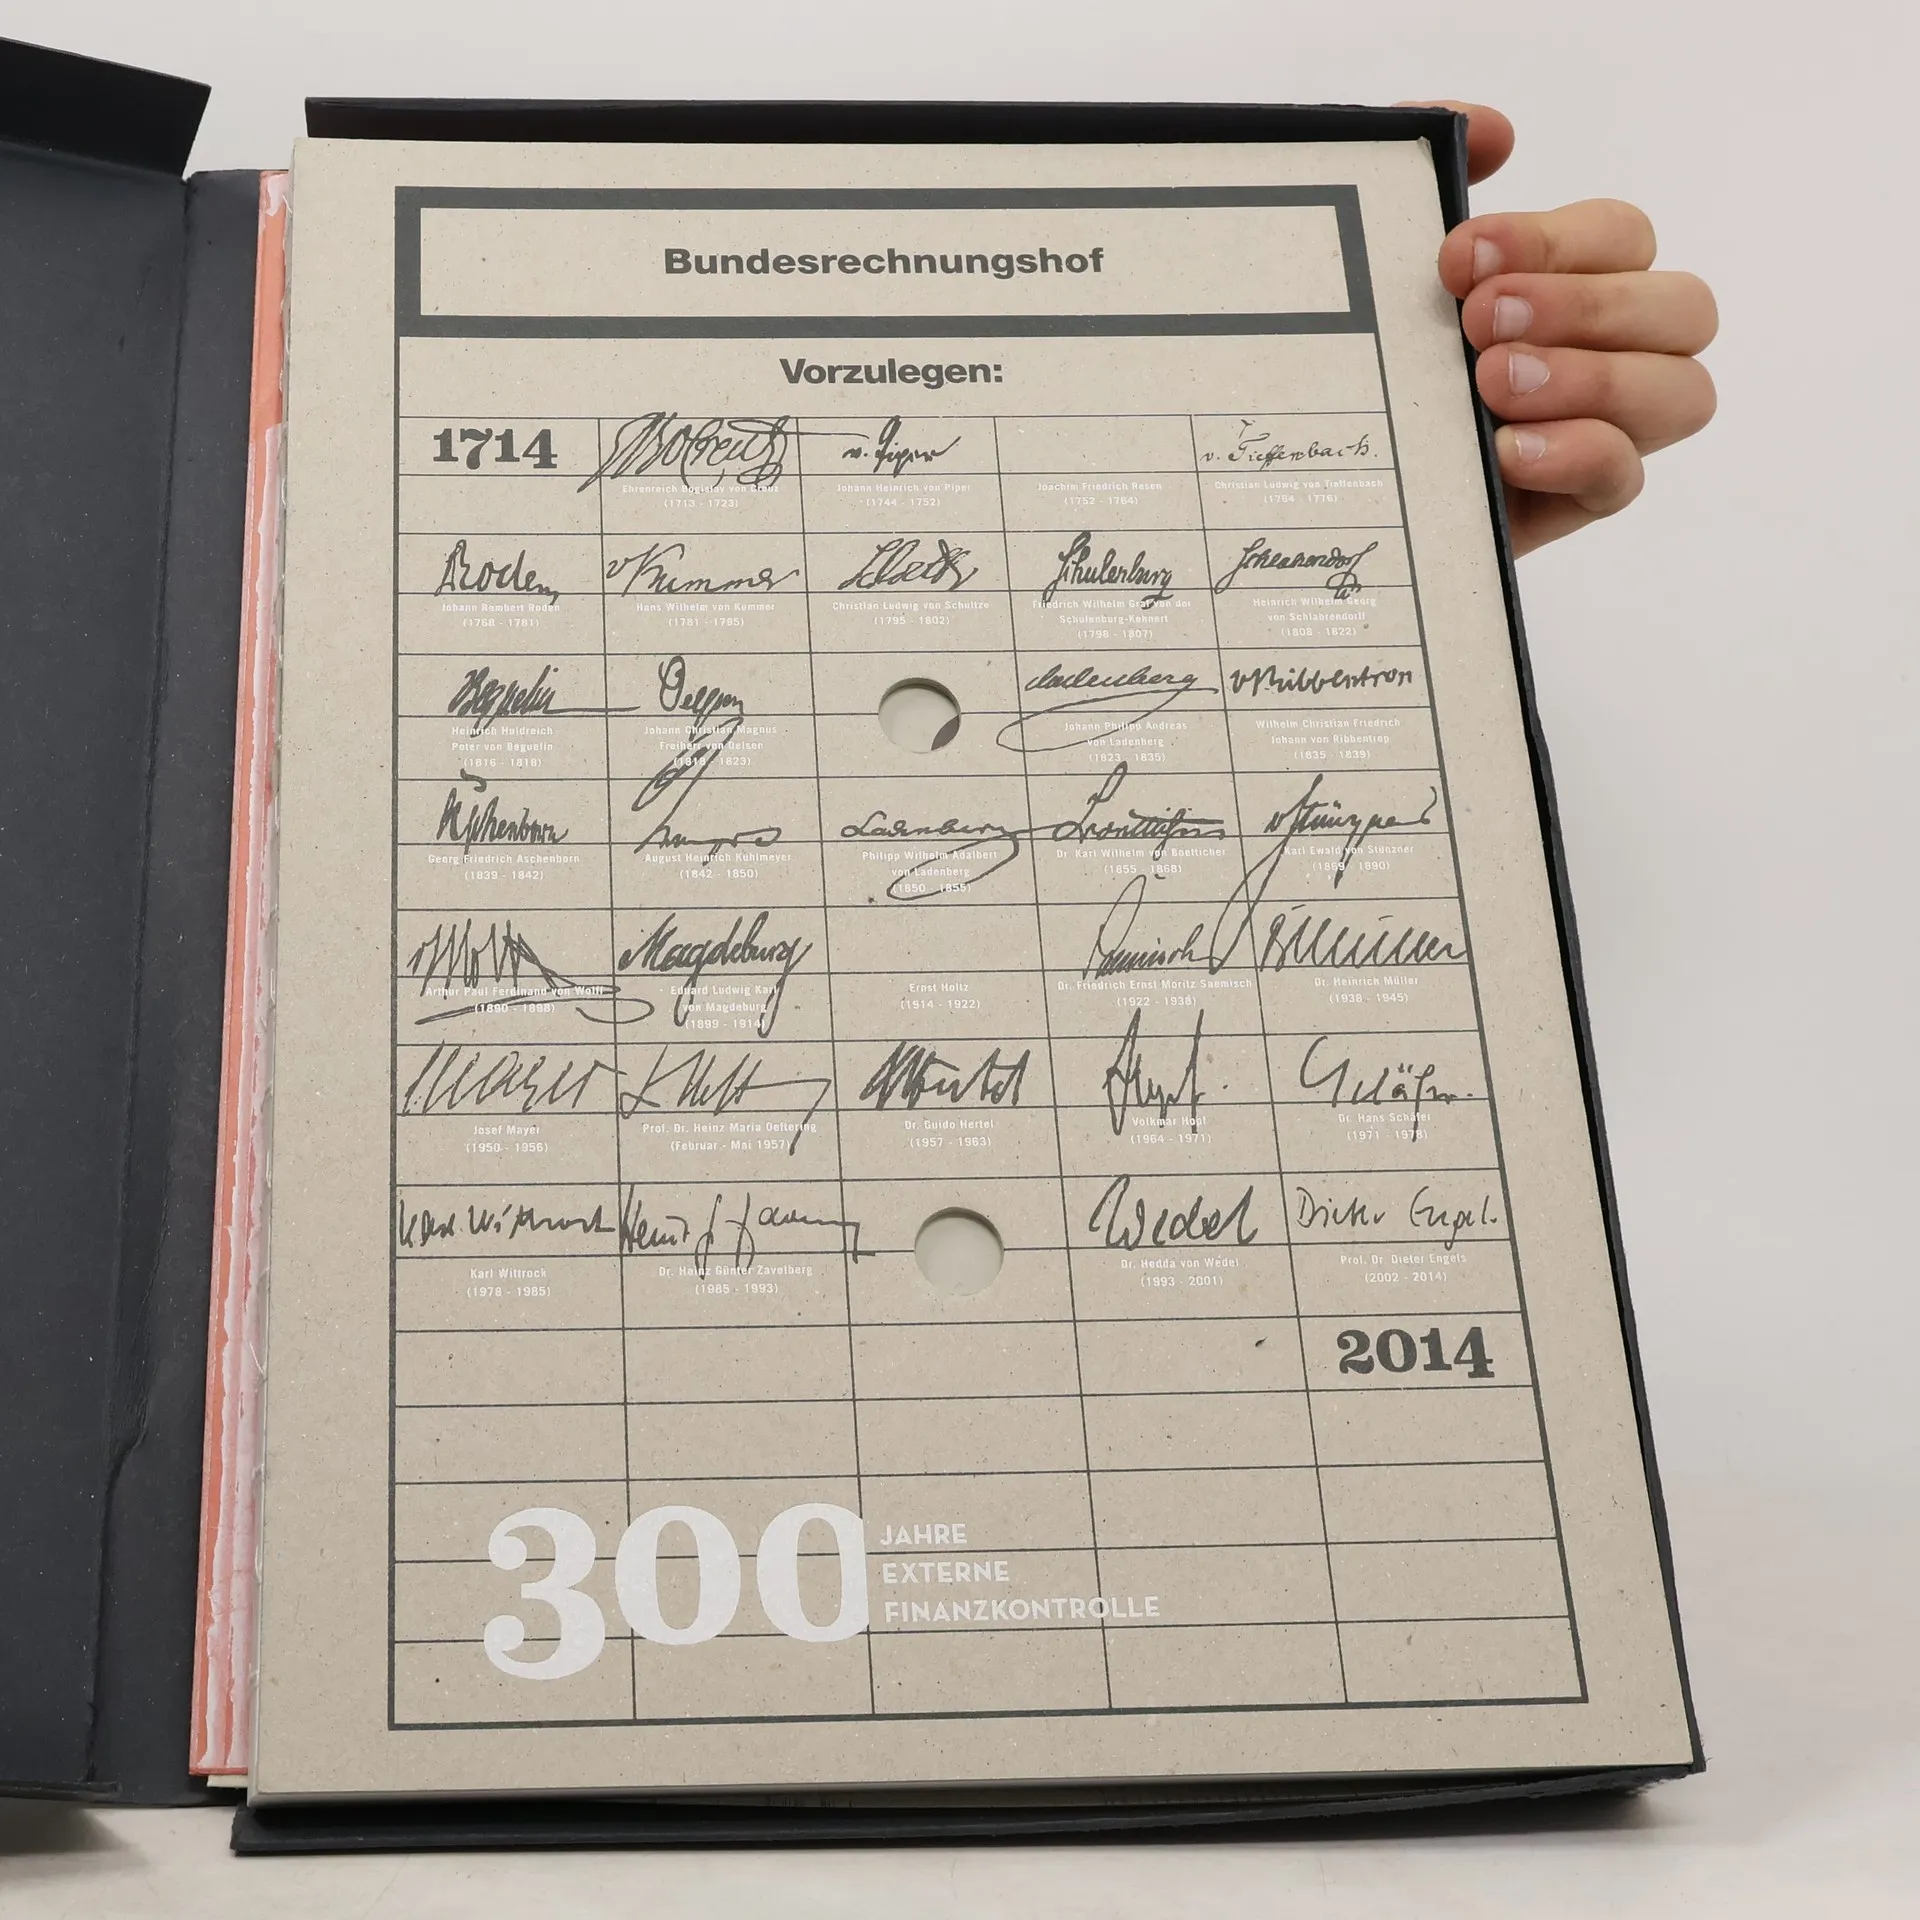 Bundesrechnungshof
Vorzulegen:
1714
v. Piper
v. Tieffenbach.
Ehrenreich Bogislav von Creuz
(1713 - 1723)
Johann Heinrich von Piper
(1744 - 1752)
Joachim Friedrich Resen
(1752 - 1764)
Christian Ludwig von Tieffenbach
(1764 - 1776)
Roden
vKummer
Schulenburg
Johann Rembert Roden
(1768 - 1781)
Hans Wilhelm von Kummer
(1781 - 1795)
Christian Ludwig von Schultze
(1795 - 1802)
Friedrich Wilhelm Graf von der
Schulenburg-Kehnert
(1798 - 1807)
Heinrich Wilhelm Georg
von Schlabrendorff
(1808 - 1822)
Beguelin
Oelsen
Ladenberg
vRibbentrop
Heinrich Huldreich
Peter von Beguelin
(1816 - 1818)
Johann Christian Magnus
Freiherr von Oelsen
(1818 - 1823)
Johann Philipp Andreas
von Ladenberg
(1823 - 1835)
Wilhelm Christian Friedrich
Johann von Ribbentrop
(1835 - 1839)
Aschenborn
Ladenberg
vStünzner
Georg Friedrich Aschenborn
(1839 - 1842)
August Heinrich Kuhlmeyer
(1842 - 1850)
Philipp Wilhelm Adalbert
von Ladenberg
(1850 - 1855)
Dr. Karl Wilhelm von Boetticher
(1855 - 1868)
Karl Ewald von Stünzner
(1869 - 1890)
vWolff
Magdeburg
Saemisch
Müller
Arthur Paul Ferdinand von Wolff
(1890 - 1898)
Eduard Ludwig Karl
von Magdeburg
(1899 - 1914)
Ernst Holtz
(1914 - 1922)
Dr. Friedrich Ernst Moritz Saemisch
(1922 - 1938)
Dr. Heinrich Müller
(1938 - 1945)
Mayer
Hertel
Hopf.
Schäfer.
Josef Mayer
(1950 - 1956)
Prof. Dr. Heinz Maria Oeftering
(Februar - Mai 1957)
Dr. Guido Hertel
(1957 - 1963)
Volkmar Hopf
(1964 - 1971)
Dr. Hans Schäfer
(1971 - 1978)
Karl Wittrock
Wedel
Dieter Engels
Karl Wittrock
(1978 - 1985)
Dr. Heinz Günter Zavelberg
(1985 - 1993)
Dr. Hedda von Wedel
(1993 - 2001)
Prof. Dr. Dieter Engels
(2002 - 2014)
2014
300
JAHRE
EXTERNE
FINANZKONTROLLE